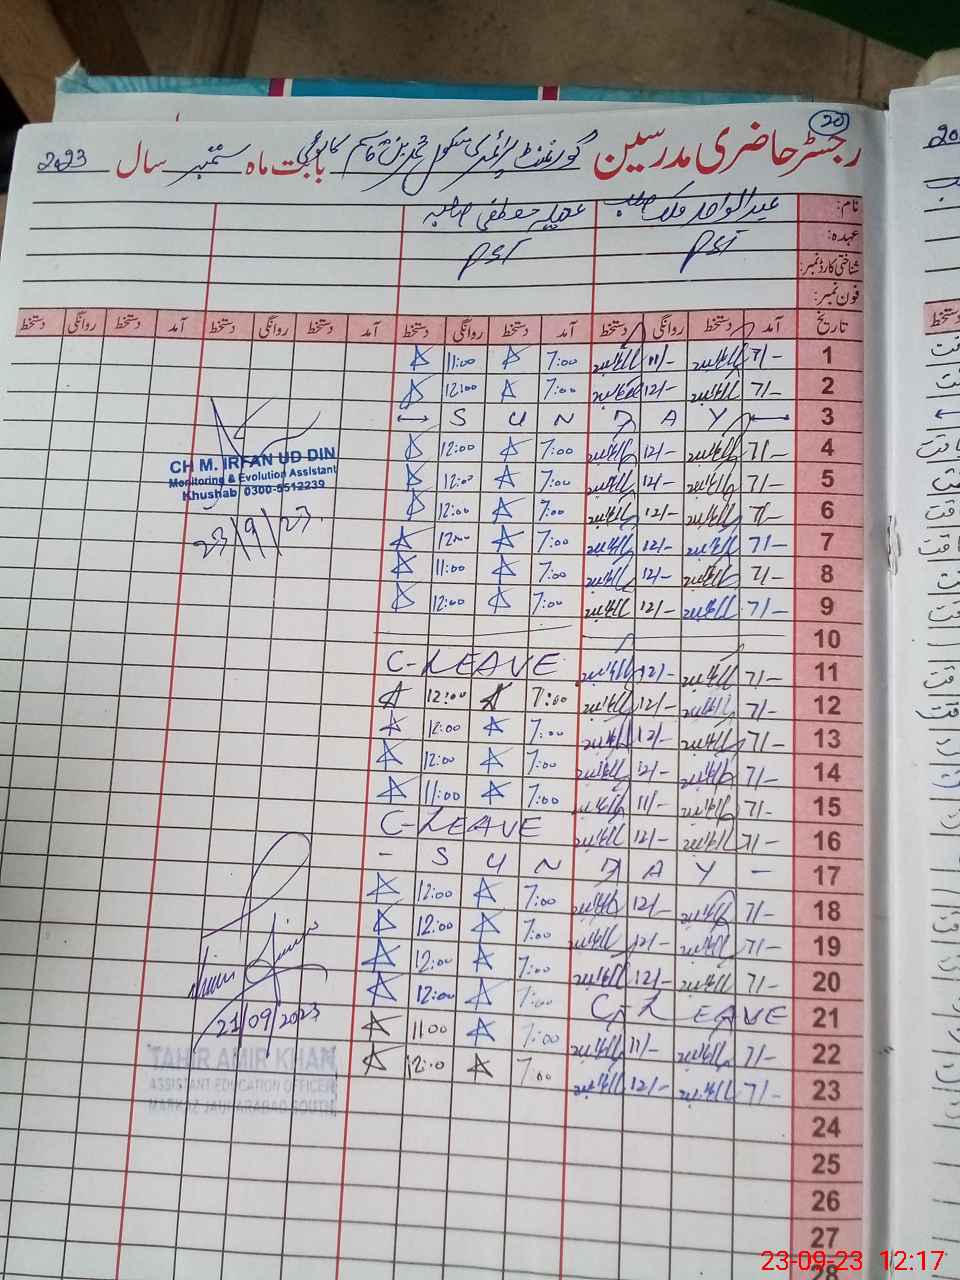 20
رجسٹر حاضری مدرسین گورنمنٹ پرائمری سکول محمد بن قاسم کالونی بابت ماہ ستمبر سال 2023
نام: عبدالواحد ملک صاحب
عہدہ: PST PST
شناختی کارڈ نمبر:
فون نمبر:
تاریخ آمد دستخط روانگی دستخط آمد دستخط روانگی دستخط آمد دستخط روانگی دستخط آمد دستخط روانگی دستخط
1 7/- 11/- 7:00 11:00
2 7/- 12/- 7:00 12:00
3 S U N D A Y
4 7/- 12/- 7:00 12:00
5 7/- 12/- 7:00 12:00
6 7/- 12/- 7:00 12:00
7 7/- 12/- 7:00 12:00
8 7/- 12/- 7:00 11:00
9 7/- 12/- 7:00 12:00
10
11 7/- 12/- C-LEAVE
12 7/- 12/- 7:00 12:00
13 7/- 12/- 7:00 12:00
14 7/- 12/- 7:00 12:00
15 7/- 11/- 7:00 11:00
16 7/- 12/- C-LEAVE
17 - S U N D A Y -
18 7/- 12/- 7:00 12:00
19 7/- 12/- 7:00 12:00
20 7/- 12/- 7:00 12:00
21 C-LEAVE 7:00 12:00
22 7/- 11/- 7:00 11:00
23 7/- 12/- 7:00 12:00
24
25
26
27
28
CH M. IRFAN UD DIN
Monitoring & Evolution Assistant
Khushab 0300-5512239
23/9/23
21/09/2023
TAHIR AMIR KHAN
ASSISTANT EDUCATION OFFICER
MARKAZ JAUHARABAD SOUTH
23-09-23 12:17